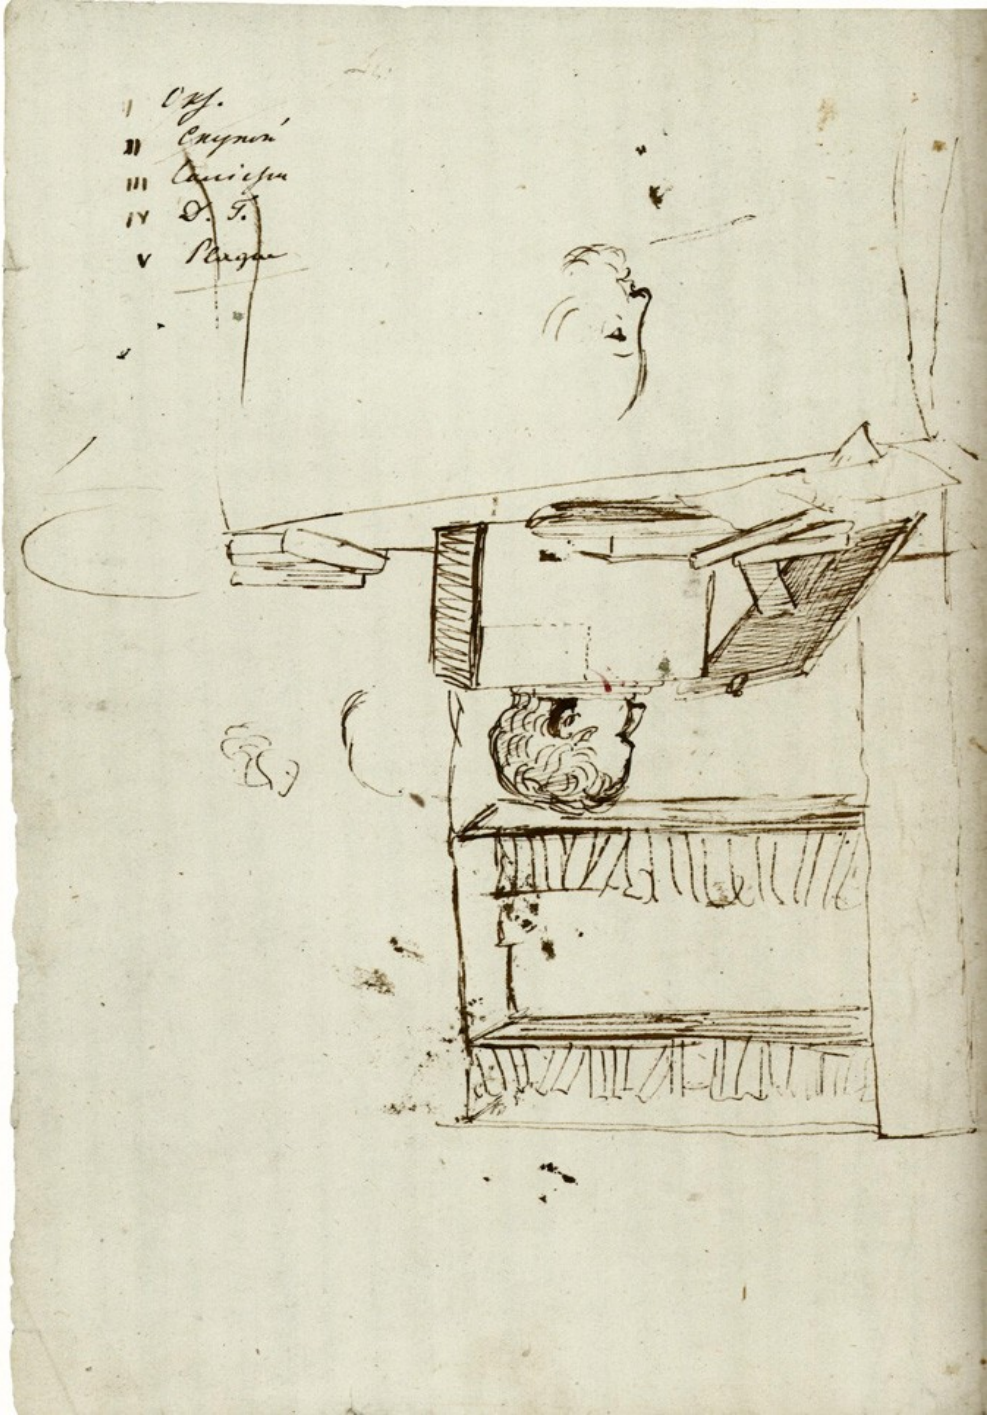 I Окт.
II Скупой
III Салиери
IV Д. Г.
V Plague